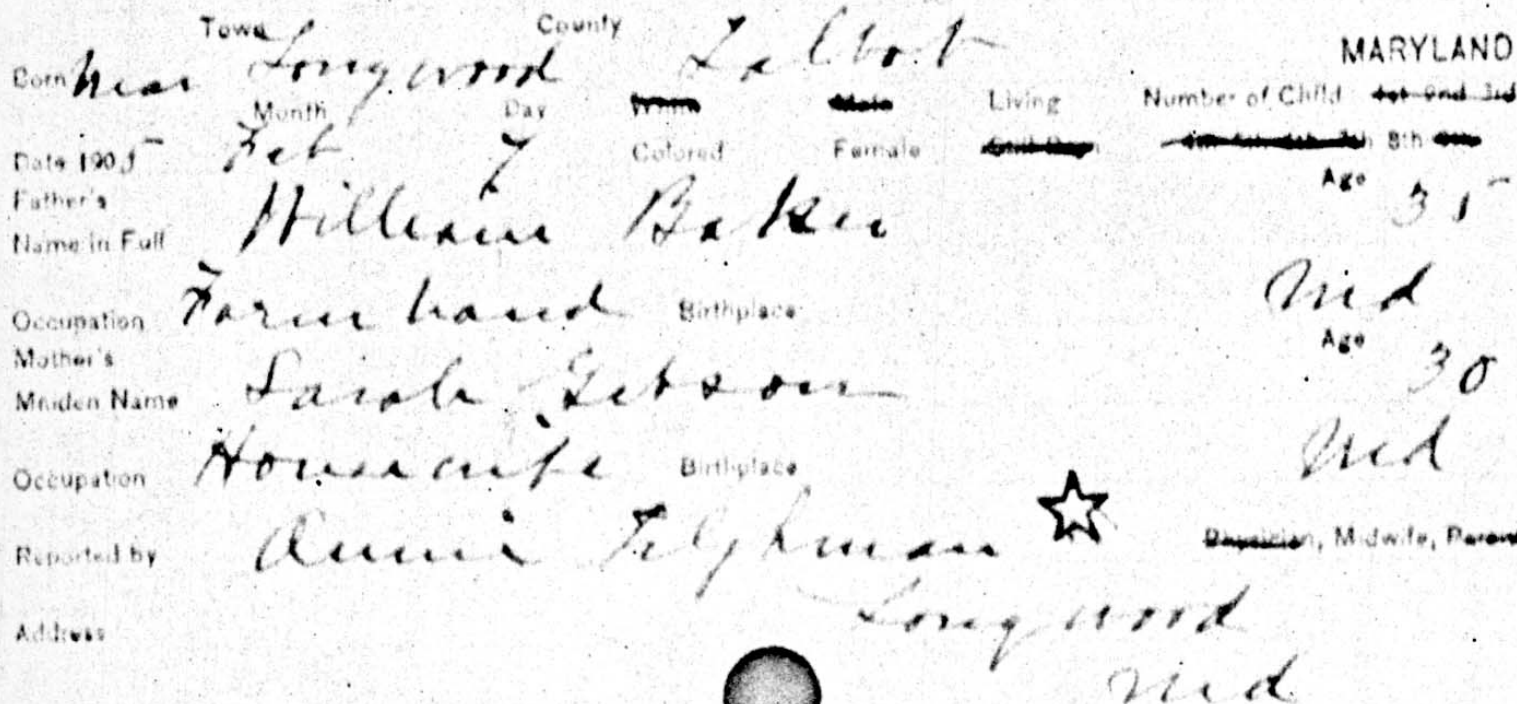 Town County
Born near Longwood Talbot MARYLAND
Month Day White Male Living Number of Child 1st 2nd 3rd
Date 1905 Feb 7 Colored Female 8th
Father's Age 35
Name in Full William Baker
Occupation Farm hand Birthplace Md
Mother's Age 30
Maiden Name Sarah Gibson
Occupation Housewife Birthplace Md
Reported by Annie Tilghman Physician, Midwife, Parent
Address Longwood
Md